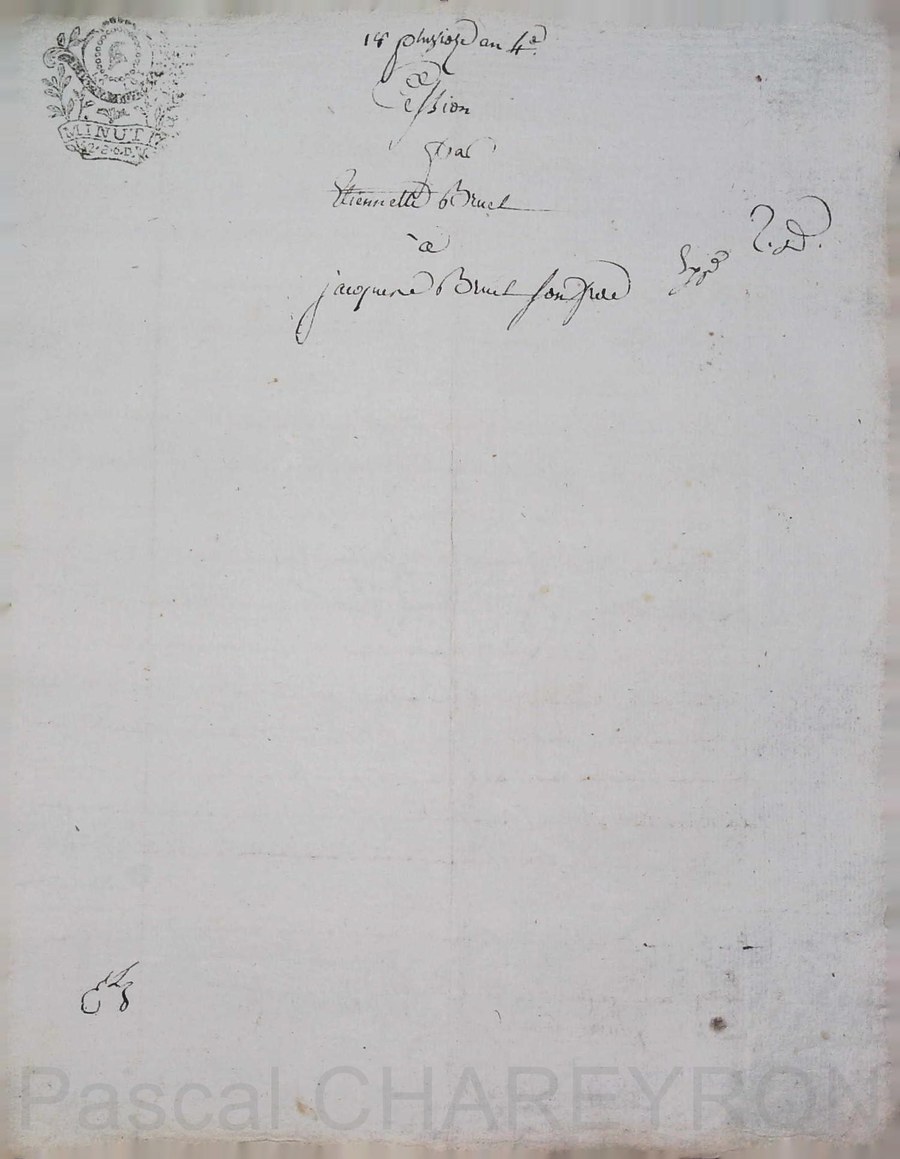 MINUT
18 pluviose an 4e
Cession
par
Etiennette Bruet
à
jacques Bruet son frere
Exp.d
R. d.
Pascal CHAREYRON